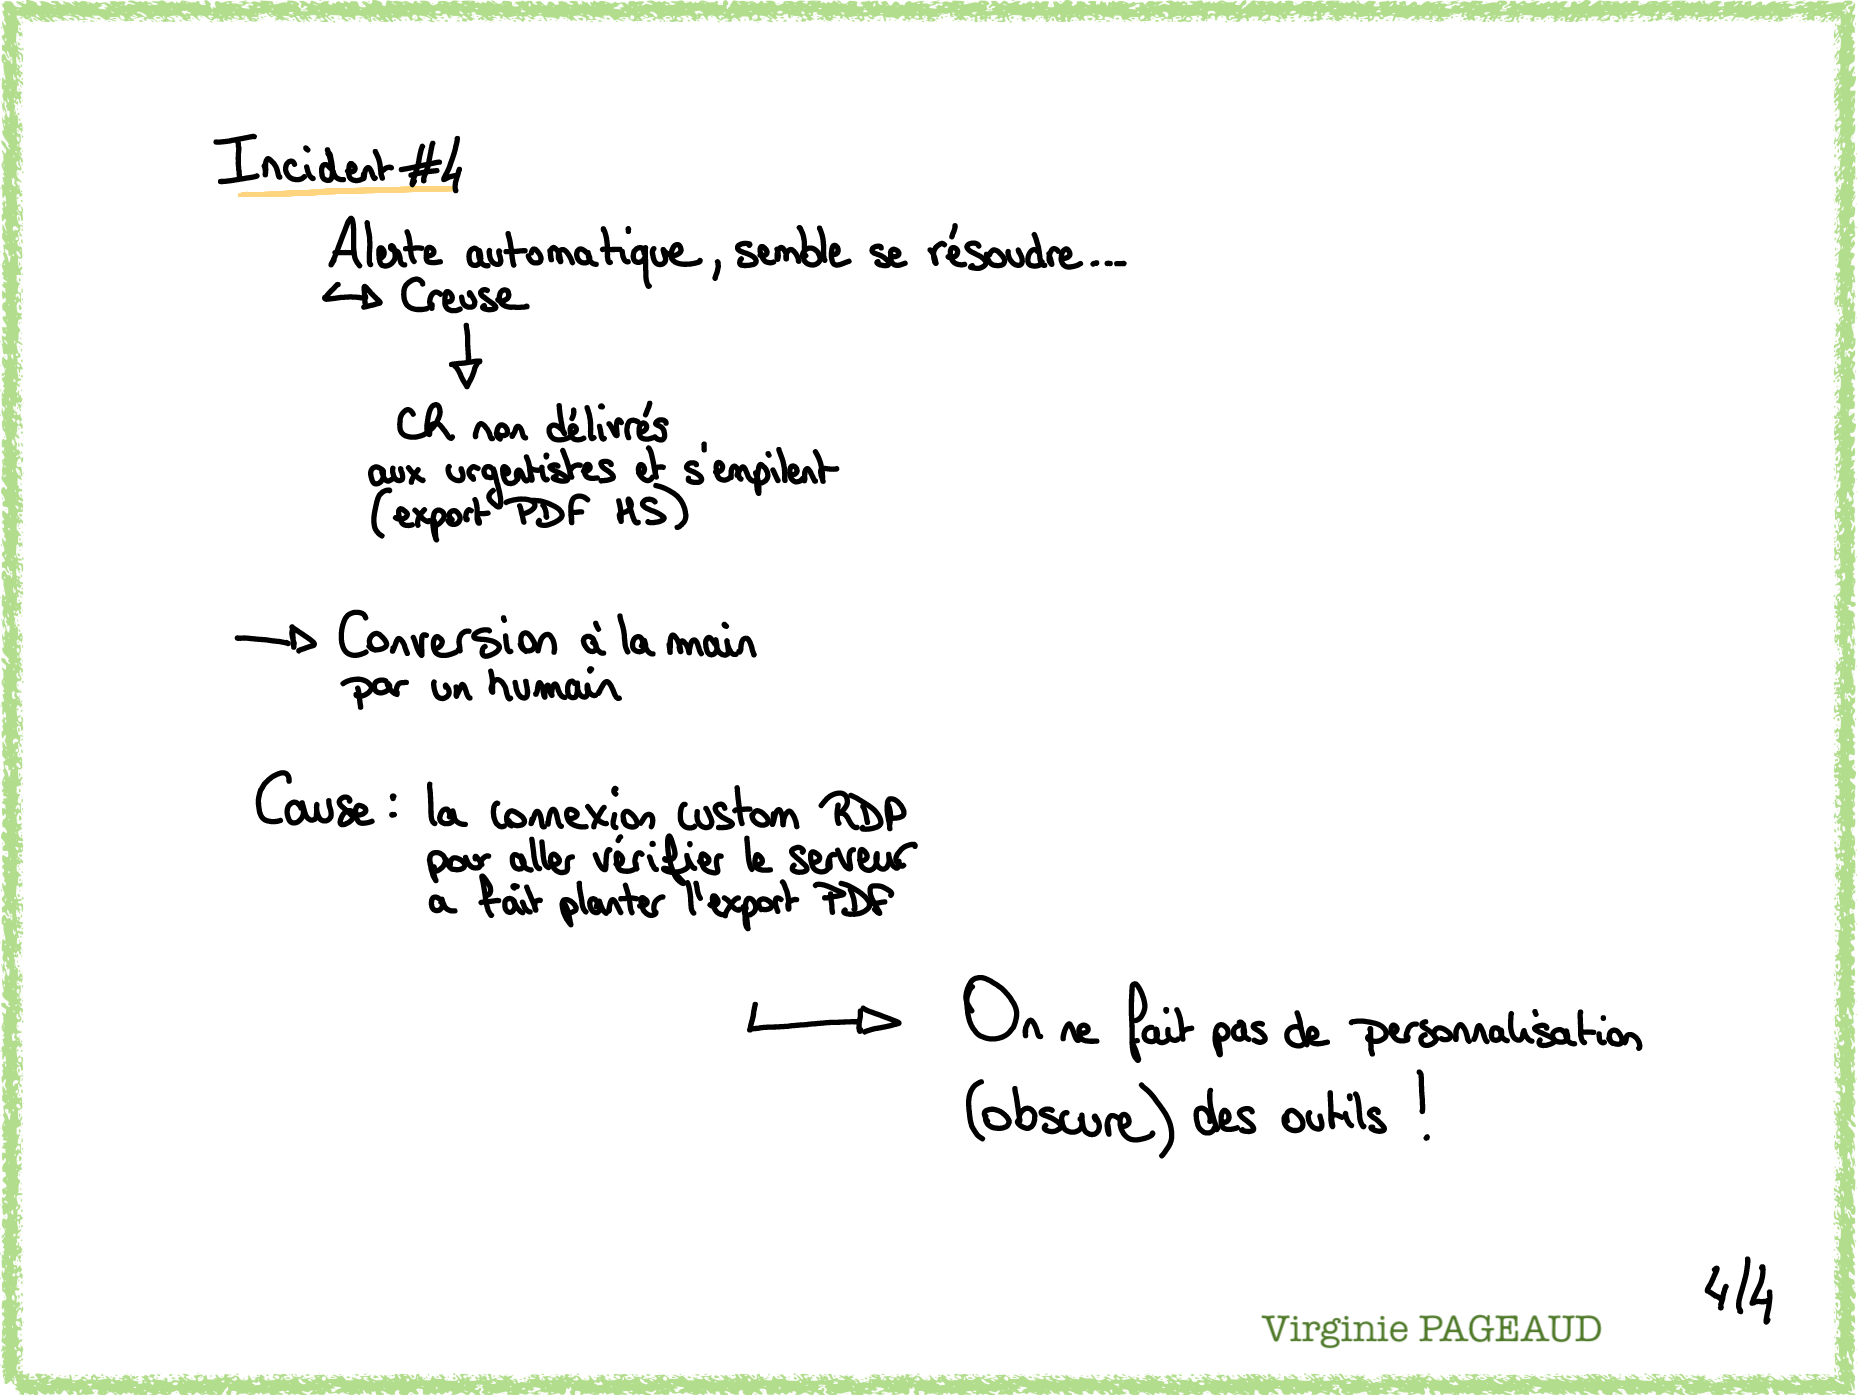 Incident #4
Alerte automatique, semble se résoudre...
↪ Creuse
CR non délivrés
aux urgentistes et s'empilent
(export PDF HS)
→ Conversion à la main
par un humain
Cause : la connexion custom RDP
pour aller vérifier le serveur
a fait planter l'export PDF
↳ On ne fait pas de personnalisation
(obscure) des outils !
4/4
Virginie PAGEAUD